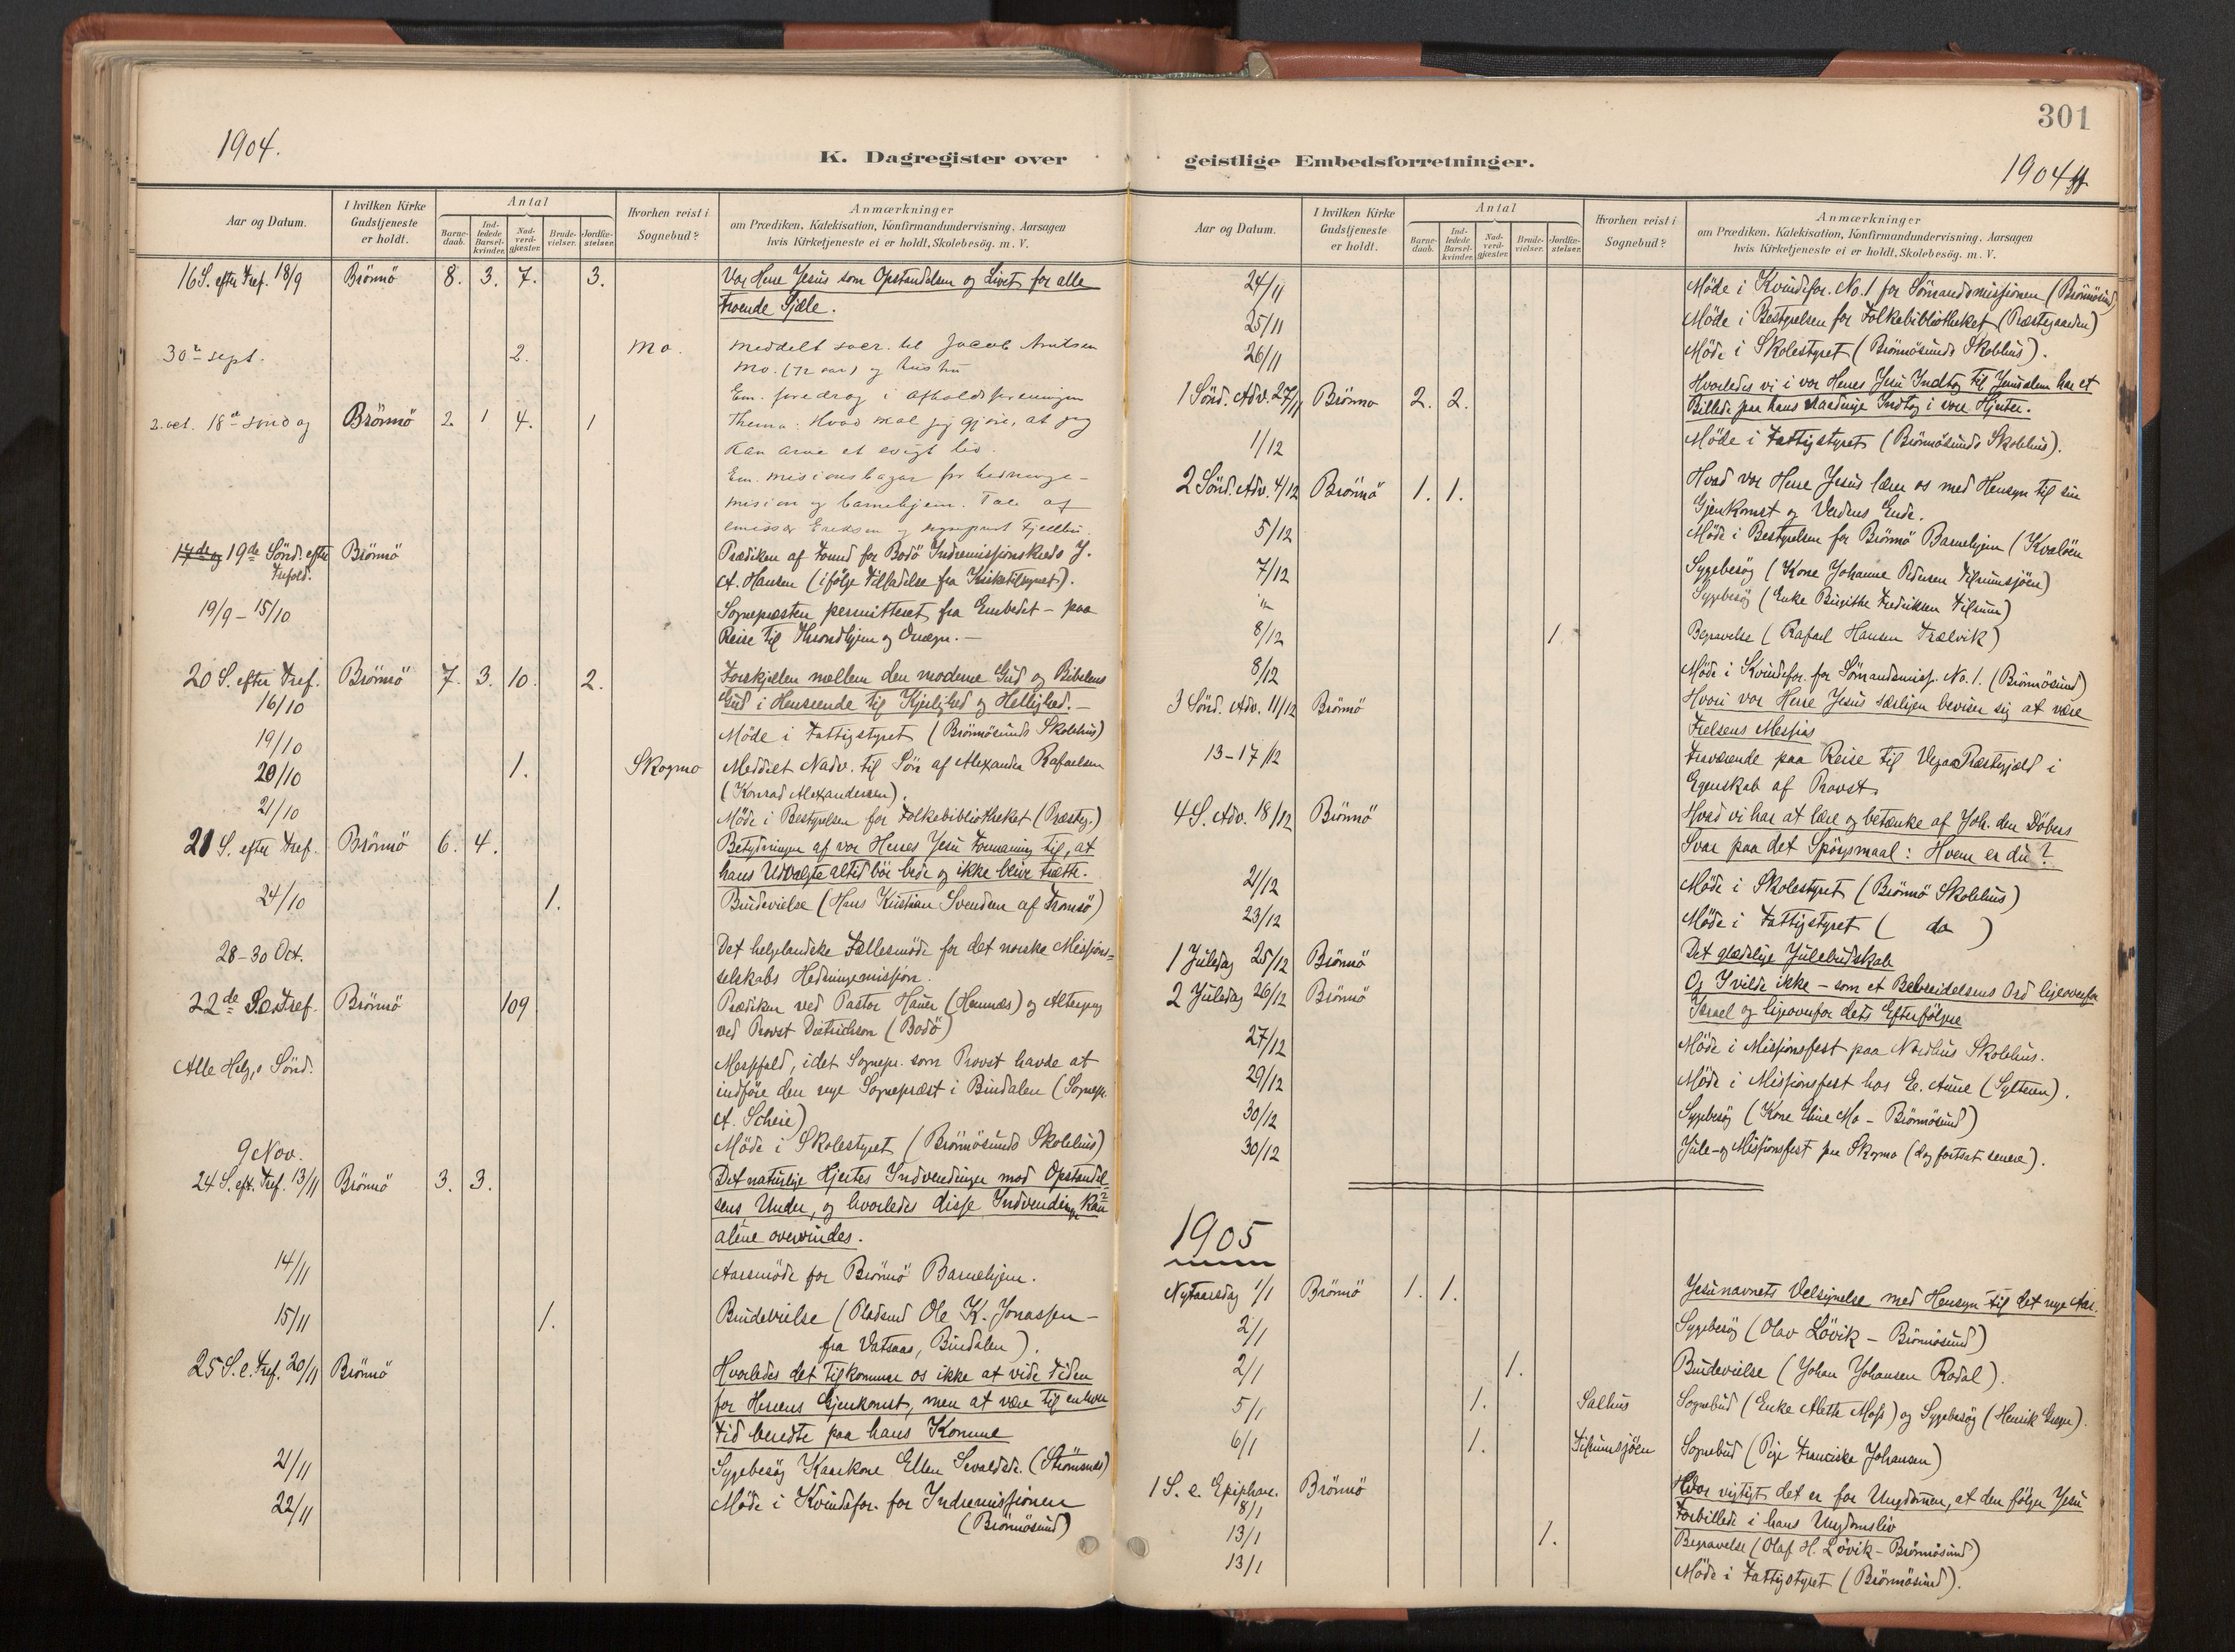 1904.
K. Dagregister over
Aar og Datum.
I hvilken Kirke
Gudstjeneste
er holdt.
Antal
Barne-
daab.
Ind-
ledede
Barsel-
kvinder.
Nad-
verd-
gjester.
Brude-
vielser.
Jordfæ-
stelser.
Hvorhen reist i
Sognebud?
Anmærkninger
om Prædiken, Katekisation, Konfirmandundervisning, Aarsagen
hvis Kirketjeneste ei er holdt, Skolebesøg. m. V.
16 S. efter Tref. 18/9 Brönnö 8. 3. 7. 3. Vor Herre Jesus som Opstandelsen og Livet for alle
troende Sjæle.
30te sept. 2. Mo. Meddelt sacr. til Jacob Knutsen
Mo. (72 aar) og hustru
Em. foredrag i afholdsforeningen
2. oct. 18de sønd og Brönnö 2. 1 4. 1 Thema: Hvad skal jeg gjøre, at jeg
kan arve et evigt liv.
Em. misionsbazar for hedninge-
mision og barnehjem. Tale af
emissær Eriksen og sogneprest Fjellbu
17de og 19de Sönd. efter Brönnö Prædiken af Formd for Bodö Indremissionskreds J.
Trefold. A. Hansen (ifölge Tilladelse fra Kirketilsynet).
19/9 - 15/10 Sognepræsten permitteret fra Embedet - paa
Reise til Throndhjem og Omegn. -
20 S. efter Tref. Brönnö 7. 3. 10. 2. Forskjellen mellem den moderne Gud og Bibelens
16/10 Gud i Henseende til Kjærlighed og Hellighed. -
19/10 Möde i Fattigstyret (Brönnösunds Skolehus)
20/10 1. Skogmo Meddelt Nadv. til Sön af Alexander Rafaelsen
(Konrad Alexandersen).
21/10 Möde i Bestyrelsen for Folkebibliotheket (Præsteg.)
21 S. efter Tref. Brönnö 6. 4. Betydningen af vor Herres Jesu Formaning til, at
hans Udvalgte altid bör bede og ikke blive trætte.
24/10 1. Brudevielse (Hans Kristian Svendsen af Tromsö)
28-30 Oct. Det helgelandske Fællesmöde for det norske Missions=
selskabs Hedningemission.
22de S.e.Tref. Brönnö 109 Prædiken ved Pastor Hauer (Hemnæs) og Altergang
ved Provst Dietrichson (Bodö)
Alle Helg,s Sönd. Messefald, idet Sognepr. som Provst havde at
indföre den nye Sognepræst i Bindalen (Sognepr.
A. Scheie)
9 Nov. Möde i Skolestyret (Brönnösunds Skolehus)
24 S. eft. Tref. 13/11 Brönnö 3. 3. Det naturlige Hjertes Indvendinger mod Opstandel-
sens Under, og hvorledes disse Indvendinger kan
alene overvindes.
14/11 Aarsmöde for Brönnö Barnehjem.
15/11 1. Brudevielse (Pladsmd Ole K. Jonassen -
fra Vatsaas, Bindalen).
25 S. e. Tref. 20/11 Brönnö Hvorledes det tilkommer os ikke at vide Tiden
for Herrens Gjenkomst, men at være til enhver
Tid beredte paa hans Komme
21/11 Sygebesög Kaarkone Ellen Sevaldsdr. (Strömsnæs)
22/11 Möde i Kvindefor. for Indremissionen
(Brönnösund)
301
geistlige Embedsforretninger.
1904
Aar og Datum.
I hvilken Kirke
Gudstjeneste
er holdt.
Antal
Barne-
daab.
Ind-
ledede
Barsel-
kvinder.
Nad-
verd-
gjester.
Brude-
vielser.
Jordfæ-
stelser.
Hvorhen reist i
Sognebud?
Anmærkninger
om Prædiken, Katekisation, Konfirmandundervisning, Aarsagen
hvis Kirketjeneste ei er holdt, Skolebesøg. m. V.
24/11 Möde i Kvindefor. No. 1 for Sömandsmissionen (Brönnösund)
25/11 Möde i Bestyrelsen for Folkebibliotheket (Præstegaarden)
26/11 Möde i Skolestyret (Brönnösunds Skolehus).
1 Sönd. Adv. 27/11 Brönnö 2. 2. Hvorledes vi i vor Herres Jesu Indtog til Jerusalem har et
Billede paa hans aandelige Indtog i vore Hjerter.
1/12 Möde i Fattigstyret (Brönnösunds Skolehus).
2 Sönd. Adv. 4/12 Brönnö 1. 1. Hvad vor Herre Jesus lærer os med Hensyn til sin
Gjenkomst og Verdens Ende.
5/12 Möde i Bestyrelsen for Brönnö Barnehjem (Kvalöen
7/12 Sygebesög (Kone Johanne Pedersen Tilrumsjöen)
" Sygebesög (Enke Birgithe Fredriksen Tilrum)
8/12 1. Begravelse (Rafael Hansen Trælvik)
8/12 Möde i Kvindefor. for Sömandsmiss. No. 1. (Brönnösund)
3 Sönd. Adv. 11/12 Brönnö Hvori vor Herre Jesus særligen beviser sig at være
Frelsens Messias
13-17/12 Fraværende paa Reise til Vega Præstegjæld i
Egenskab af Provst.
4 S. Adv. 18/12 Brönnö Hvad vi har at lære og betænke af Joh. den Döbers
Svar paa det Spörgsmaal: Hvem er du?
21/12 Möde i Skolestyret (Brönnö Skolehus)
23/12 Möde i Fattigstyret ( do )
1 Juledag 25/12 Brönnö Det glædelige Julebudskab
2 Juledag 26/12 Brönnö Og I vilde ikke - som et Bebreidelsens Ord ligeoverfor
Israel og ligeoverfor dets Efterfölgere
27/12 Möde i Missionsfest paa Nordhus Skolehus.
29/12 Möde i Missionsfest hos E. Aune (Sylteren).
30/12 Sygebesög (Kone Eline Mo - Brönnösund)
30/12 Jule- og Missionsfest paa Skogmo (dog fortsat senere).
1905
Nytaarsdag 1/1 Brönnö 1. 1. Jesunavnets Velsignelse med Hensyn til det nye Aar.
2/1 Sygebesög (Olav Lövik - Brönnösund)
2/1 1. Brudevielse (Johan Johansen Rodal).
5/1 1. Salhus Sognebud (Enke Aleth Moss) og Sygebesög (Henrik Greger).
6/1 1. Tilrumsjöen Sognebud (Pige Franciska Johansen)
1 S. e. Epiphan. Brönnö Hvor vigtigt det er for Ungdommen, at den fölger Jesu
8/1 Forbillede i hans Ungdomsliv
13/1 1. Begravelse (Olaf H. Lövik - Brönnösund)
13/1 Möde i Fattigstyret (Brönnösund).